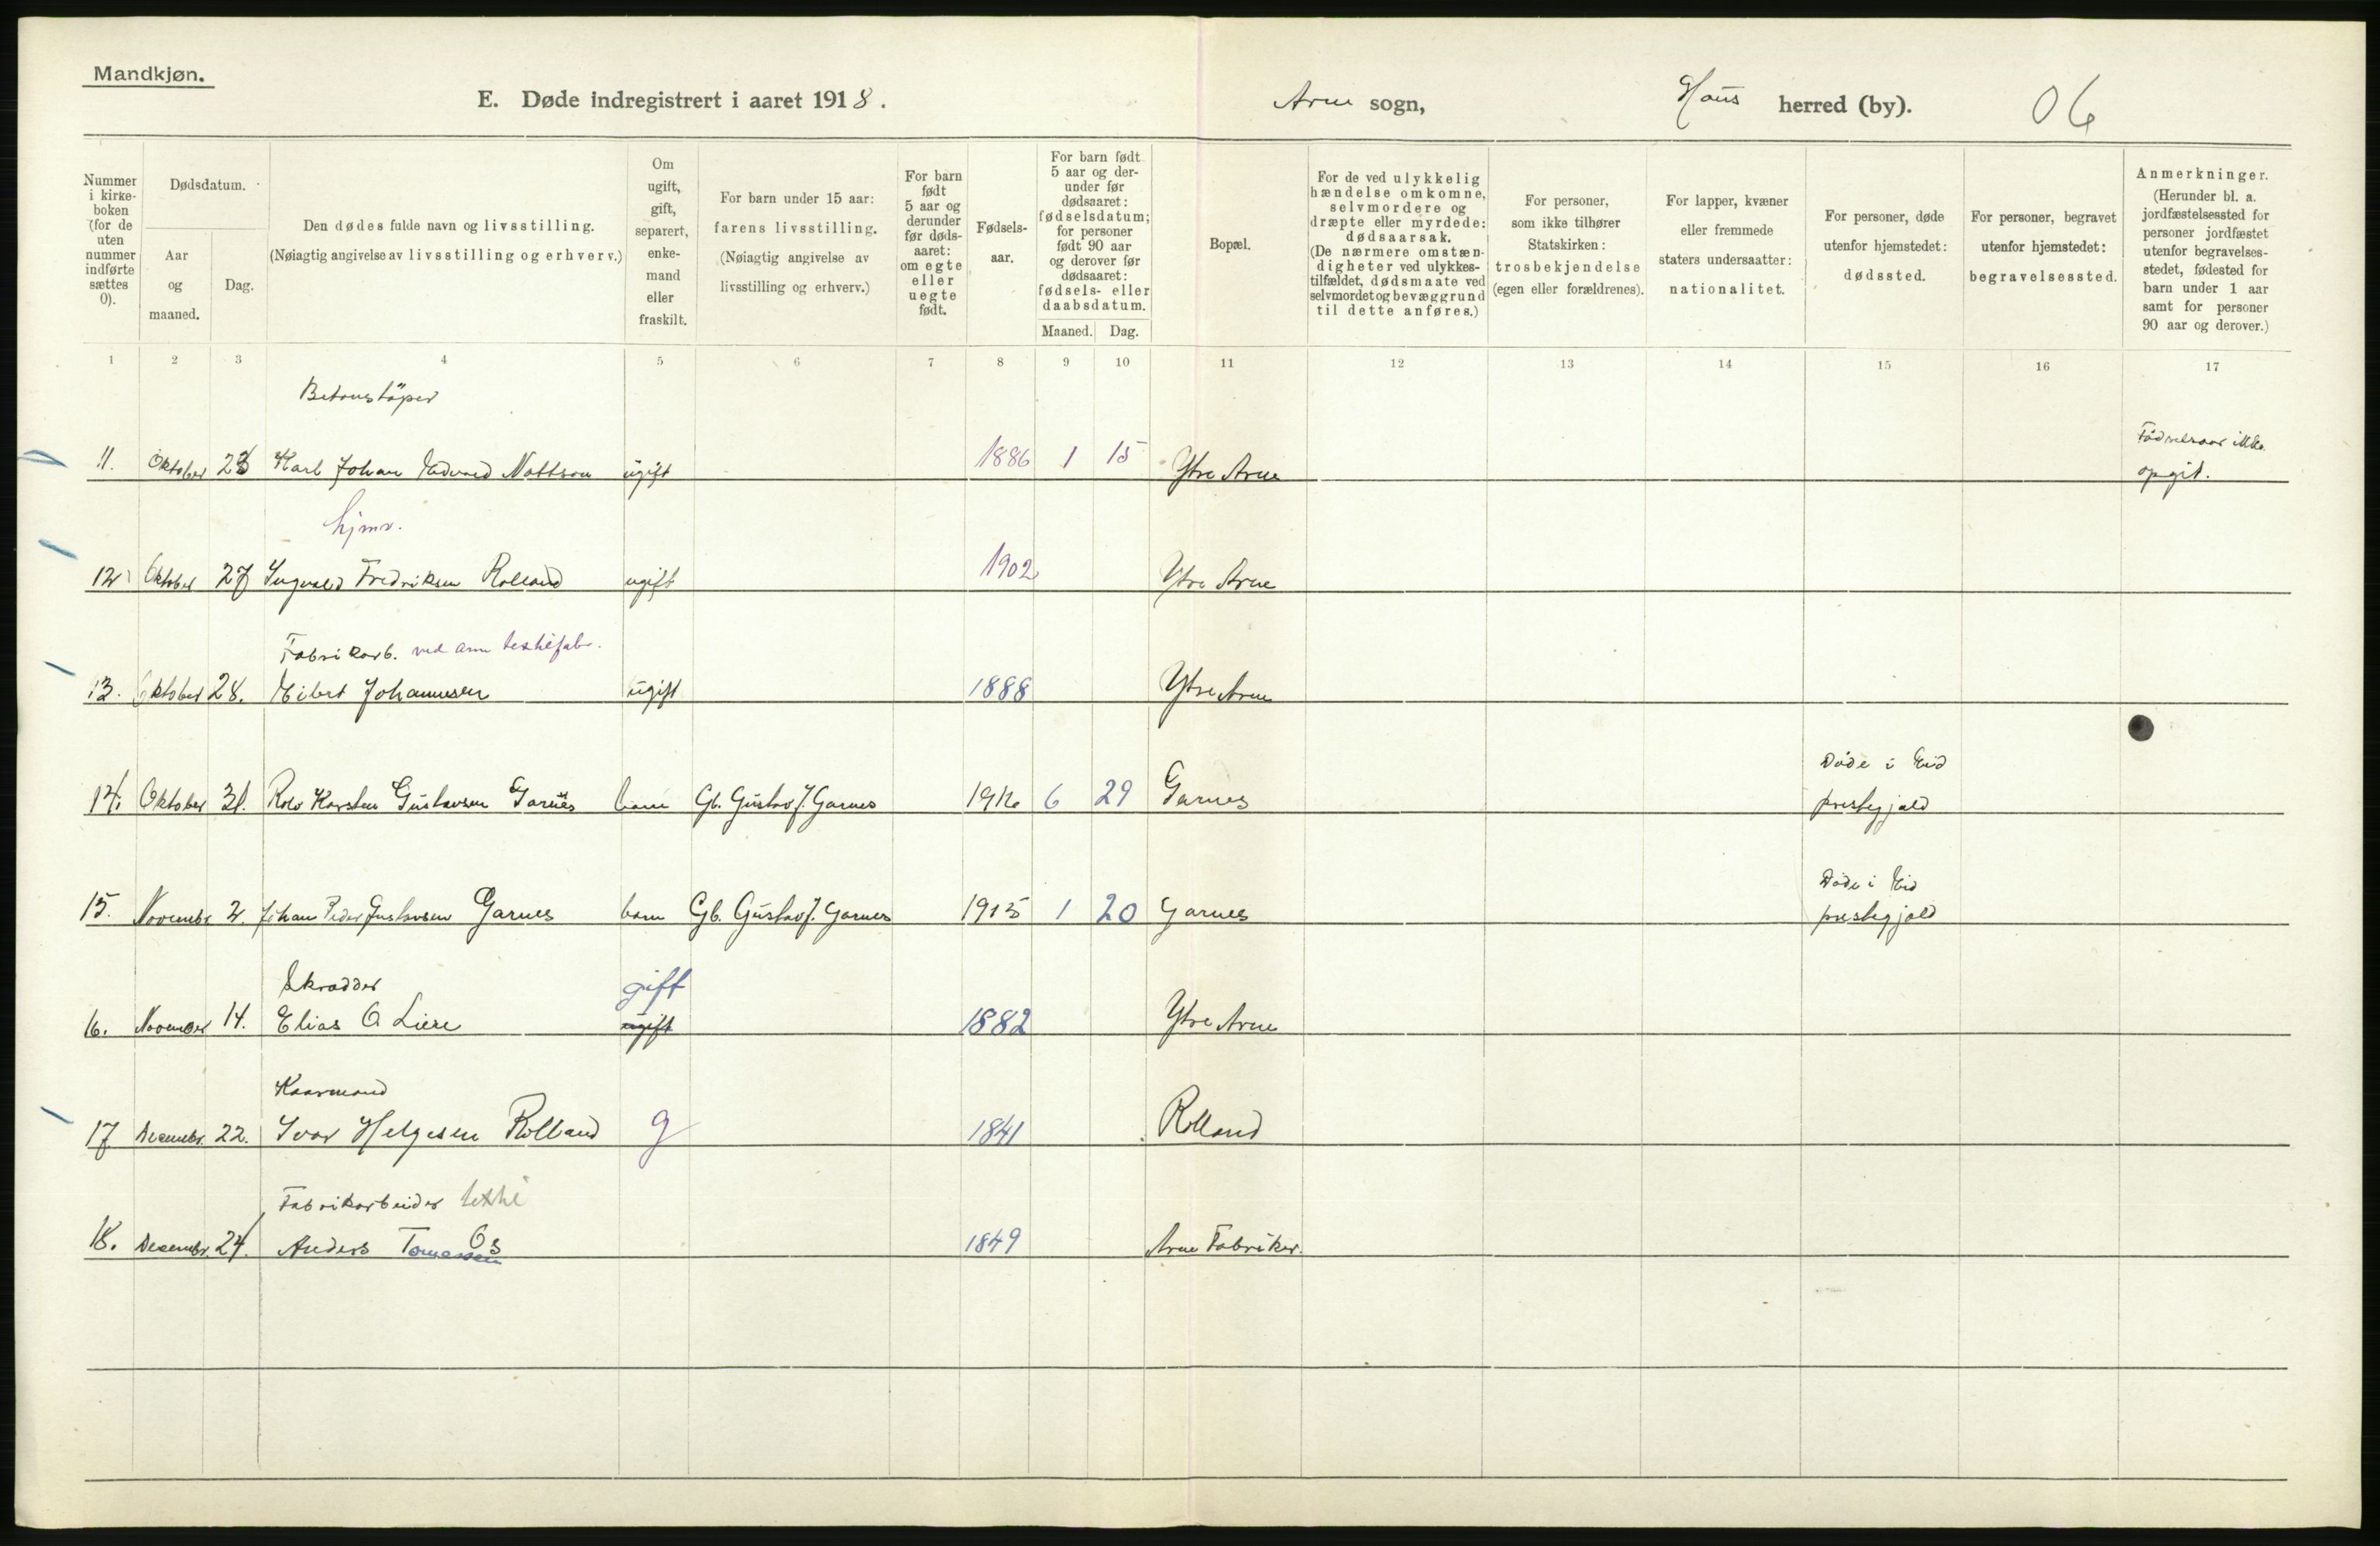 Mandkjøn.
E. Døde indregistrert i aaret 1918.
Arne sogn,
Haus herred (by).
06
Nummer i kirke-boken (for de uten nummer indførte sættes 0).
Dødsdatum.
Aar og maaned.
Dag.
Den dødes fulde navn og livsstilling.
(Nøiagtig angivelse av livsstilling og erhverv.)
Om ugift, gift, separert, enke-mand eller fraskilt.
For barn under 15 aar:
farens livsstilling.
(Nøiagtig angivelse av livsstilling og erhverv.)
For barn født 5 aar og derunder før døds-aaret: om egte eller uegte født.
Fødsels-aar.
For barn født 5 aar og der-under før dødsaaret: fødselsdatum; for personer født 90 aar og derover før dødsaaret: fødsels- eller daabsdatum.
Maaned. Dag.
Bopæl.
For de ved ulykkelig hændelse omkomne, selvmordere og dræpte eller myrdede: dødsaarsak.
(De nærmere omstæn-digheter ved ulykkes-tilfældet, dødsmaate ved selvmordet og bevæggrund til dette anføres.)
For personer, som ikke tilhører Statskirken: trosbekjendelse (egen eller forældrenes).
For lapper, kvæner eller fremmede staters undersaatter: nationalitet.
For personer, døde utenfor hjemstedet: dødssted.
For personer, begravet utenfor hjemstedet: begravelsessted.
Anmerkninger.
(Herunder bl. a. jordfæstelsessted for personer jordfæstet utenfor begravelses-stedet, fødested for barn under 1 aar samt for personer 90 aar og derover.)
1 2 3 4 5 6 7 8 9 10 11 12 13 14 15 16 17
Betonstöper
11. Oktober 23 Karl Johan Edvard Mattson ugift 1886 1 15 Ytre Arne Födselsaar ikke
opgit.
hjmv.
12 Oktober 27 Ingvald Fredriksen Rolland ugift 1902 Ytre Arne
Fabrikarb. ved Arne textilfabr.
13. Oktober 28. Eilert Johannesen ugift 1888 Ytre Arne
Döde i Eid
14. Oktober 31. Rolv Karsten Gustavsen Garnes barn Gb. Gustav J. Garnes 1916 6 29 Garnes prestegjeld
Döde i Eid
15. Novembr. 2. Johan Peder Gustavsen Garnes barn Gb. Gustav J. Garnes 1915 1 20 Garnes prestegjeld
Skradder gift
16. November 14. Elias O. Liere ugift 1882 Ytre Arne
Kaarmand
17 Decembr. 22. Ivar Helgesen Rolland g 1841 Rolland
Fabrikarbeider textil
18. Decembr. 24. Anders Tomassen Os 1849 Arne Fabriker.